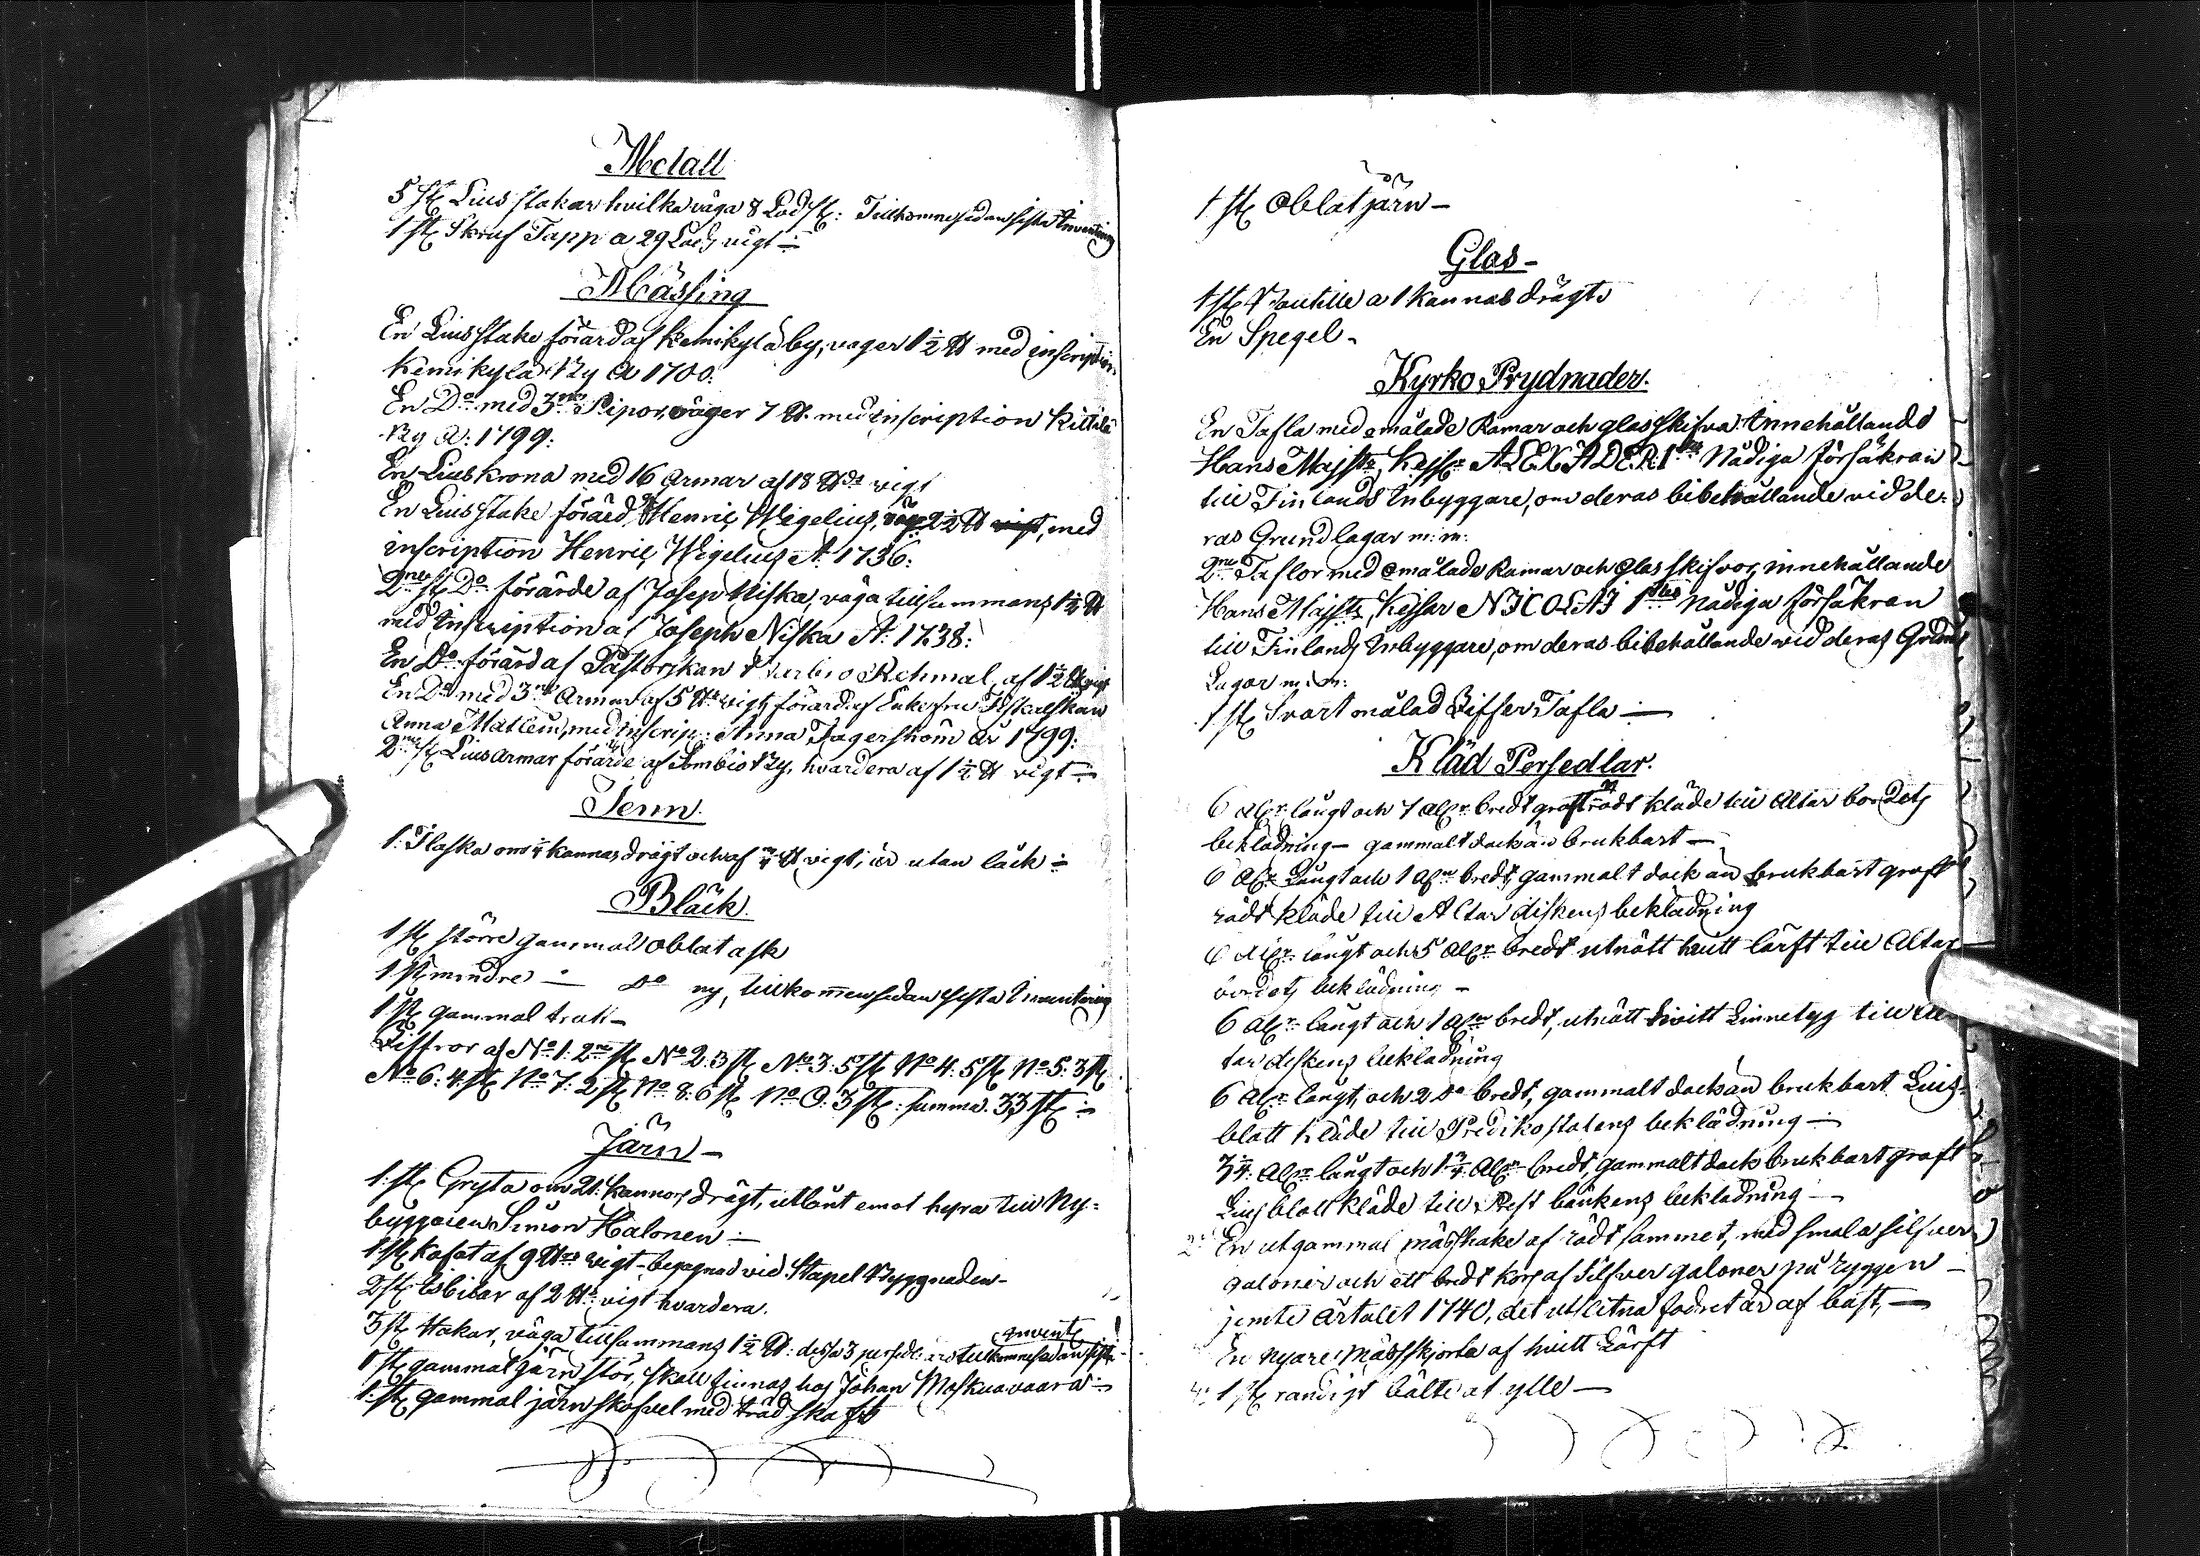 Metall
5 st Lius stakar hvilka väga 8 Lod st: Tillkomne sedan sista Inventering
1 st Skruf Tapp a 29 Lods vigt ÷
Mässing
En Lius stake förärd af Kemikylä by, väger 1½ ℔ med inscription
Kemikylä By A 1700.
En Do med 3ne Pipor, väger 7 ℔. med inscription Kittilä
By A: 1799:
En Lius krona med 16 armar af 18 ℔ds vigt
En Lius stake förärd Henric Wigelius, väger 2½ ℔ vigt, med
inscription Henric Wigelius A: 1736:
2ne st Do förärde af Joseph Niska, väga tillsammans 1½ ℔
med Inscription af Joseph Niska A: 1738:
En Do förärd af Pastorskan Rehmal, af 1½ ℔ vigt
En Do med 3ne Armar af 5 ℔ vigt, förärd af Enkefru Fiskalskan
Anna Matlein, med inscrip: Anna Fagerström år 1799:
2ne st Lius armar förärde af Sombio By, hvardera af 1½ ℔ vigt ÷
Tenn.
1. Flaska om ¾ kannas drägt och af ¾ ℔ vigt, är utan läck ÷
Bläck.
1 st större gammal oblat ask
1 st mindre — do ny, tillkommen sedan sista Inventering
1 st gammal tratt —
Ziffror af No 1: 2ne st No 2. 3 st No 3: 5 st No 4: 5 st No 5: 3 st
No 6: 4 st No 7: 2 st No 8: 6 st No 0: 3 st: summa. 33 st ÷
Järn —
1. st Gryta om 21 kannors drägt, utlånt emot hyra till Ny=
byggaren Simon Halonen ÷
1 st Kofot af 9 ℔ds vigt — begagnad vid Stapel Byggnaden —
2 st Isbilar af 2 ℔ds vigt hvardera.
3 st Hakar, väga tillsammans 1½ ℔: dessa 3 persedlar äro tillkomne sedan sista Invent
1 st gammal järn stör, skall finnas hos Johan Moskuavaara ÷
1. st gammal järn skofvel med träd skaft
1 st Oblatjärn —
Glas —
1 st Bouteille a 1 kannas drägt
En Spegel —
Kyrko Prydnader.
En Tafla med målade Ramar och glas skifva Innehållande
Hans Majsts Kejss ALEXADER. I Nådiga försäkran
till Finlands Inbyggare, om deras bibehållande vid de=
ras Grundlagar m: m:
2ne Taflor med målade Ramar och Glas skifvor, innehållande
Hans Majsts Kejsar NICOLAI 1stes Nådiga försäkran
till Finlands Inbyggare, om deras bibehållande vid deras Grund
Lagar m: m:
1 st Svart målad Ziffer Tafla ÷
Kläd Persedlar.
6 alnr långt och 7 alnr bredt groft rödt kläde till Altar bordets
beklädning — gammalt dock än brukbart —
6 alnr långt och 1 aln bredt, gammalt dock än brukbart groft
rödt kläde till Altar diskens beklädning
6 alnr långt och 5 alnr bredt utnött hvitt lärft till Altar
bordets beklädning —
6 alnr långt och 1 aln bredt, utnött hvitt Linnetyg till Al
tar diskens beklädning
6 alnr långt, och 2 do bredt, gammalt dock än brukbart Lius=
blått kläde till Predikostolens beklädning ÷
3¼ alnr långt och 1¾ alnr bredt, gammalt dock brukbart groft
Lius blått kläde till bänkens beklädning —
En utgammal mässhake af rödt sammet, med smala silfver
galoner och ett bredt kors af Silfver galoner på ryggen —
jemte årtalet 1740, det utslitna fodret är af bast, —
En nyare Mässskjorta af hvitt Lärft
1 st randigt bälte af ylle —